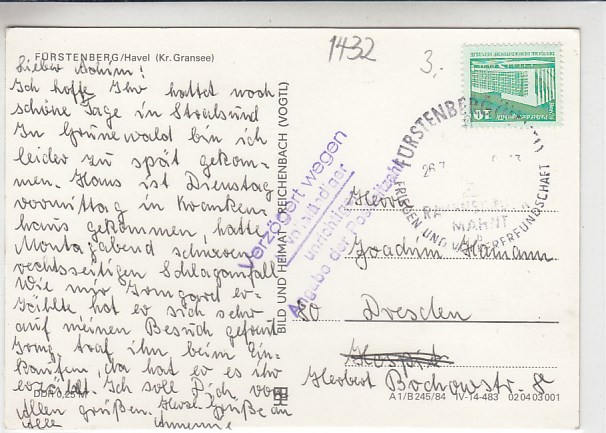 1432
3,-
FÜRSTENBERG/Havel (Kr. Gransee)
Lieber Achim!
Ich hoffe Ihr hattet noch
schöne Tage in Stralsund
In Grunewald bin ich
leider zu spät gekom-
men. Hans ist Dienstag
vormittag in Kranken-
haus gekommen, hatte
Montagabend schweren
rechtsseitigen Schlaganfall
Wie mir Irmgard er-
zählte hat er sich sehr
auf meinen Besuch gefreut
Irmg. traf ihn beim Ein-
kaufen, da hat er es ihr
erzählt. Ich soll Dich von
Allen grüßen. Herzl. Grüße an
Alle
DDR 0,25 M
BILD UND HEIMAT REICHENBACH (VOGTL)
Verzögert wegen
unvollständiger
unrichtiger
Angabe der Postleitzahl
10
FÜRSTENBERG
MAHNT
FRIEDEN UND VÖLKERFREUNDSCHAFT
Herrn
Joachim Hamann
80 Dresden
Hospit
Herbert Bochowstr. 8
A1/B245/84 IV-14-483 02 04 03 001